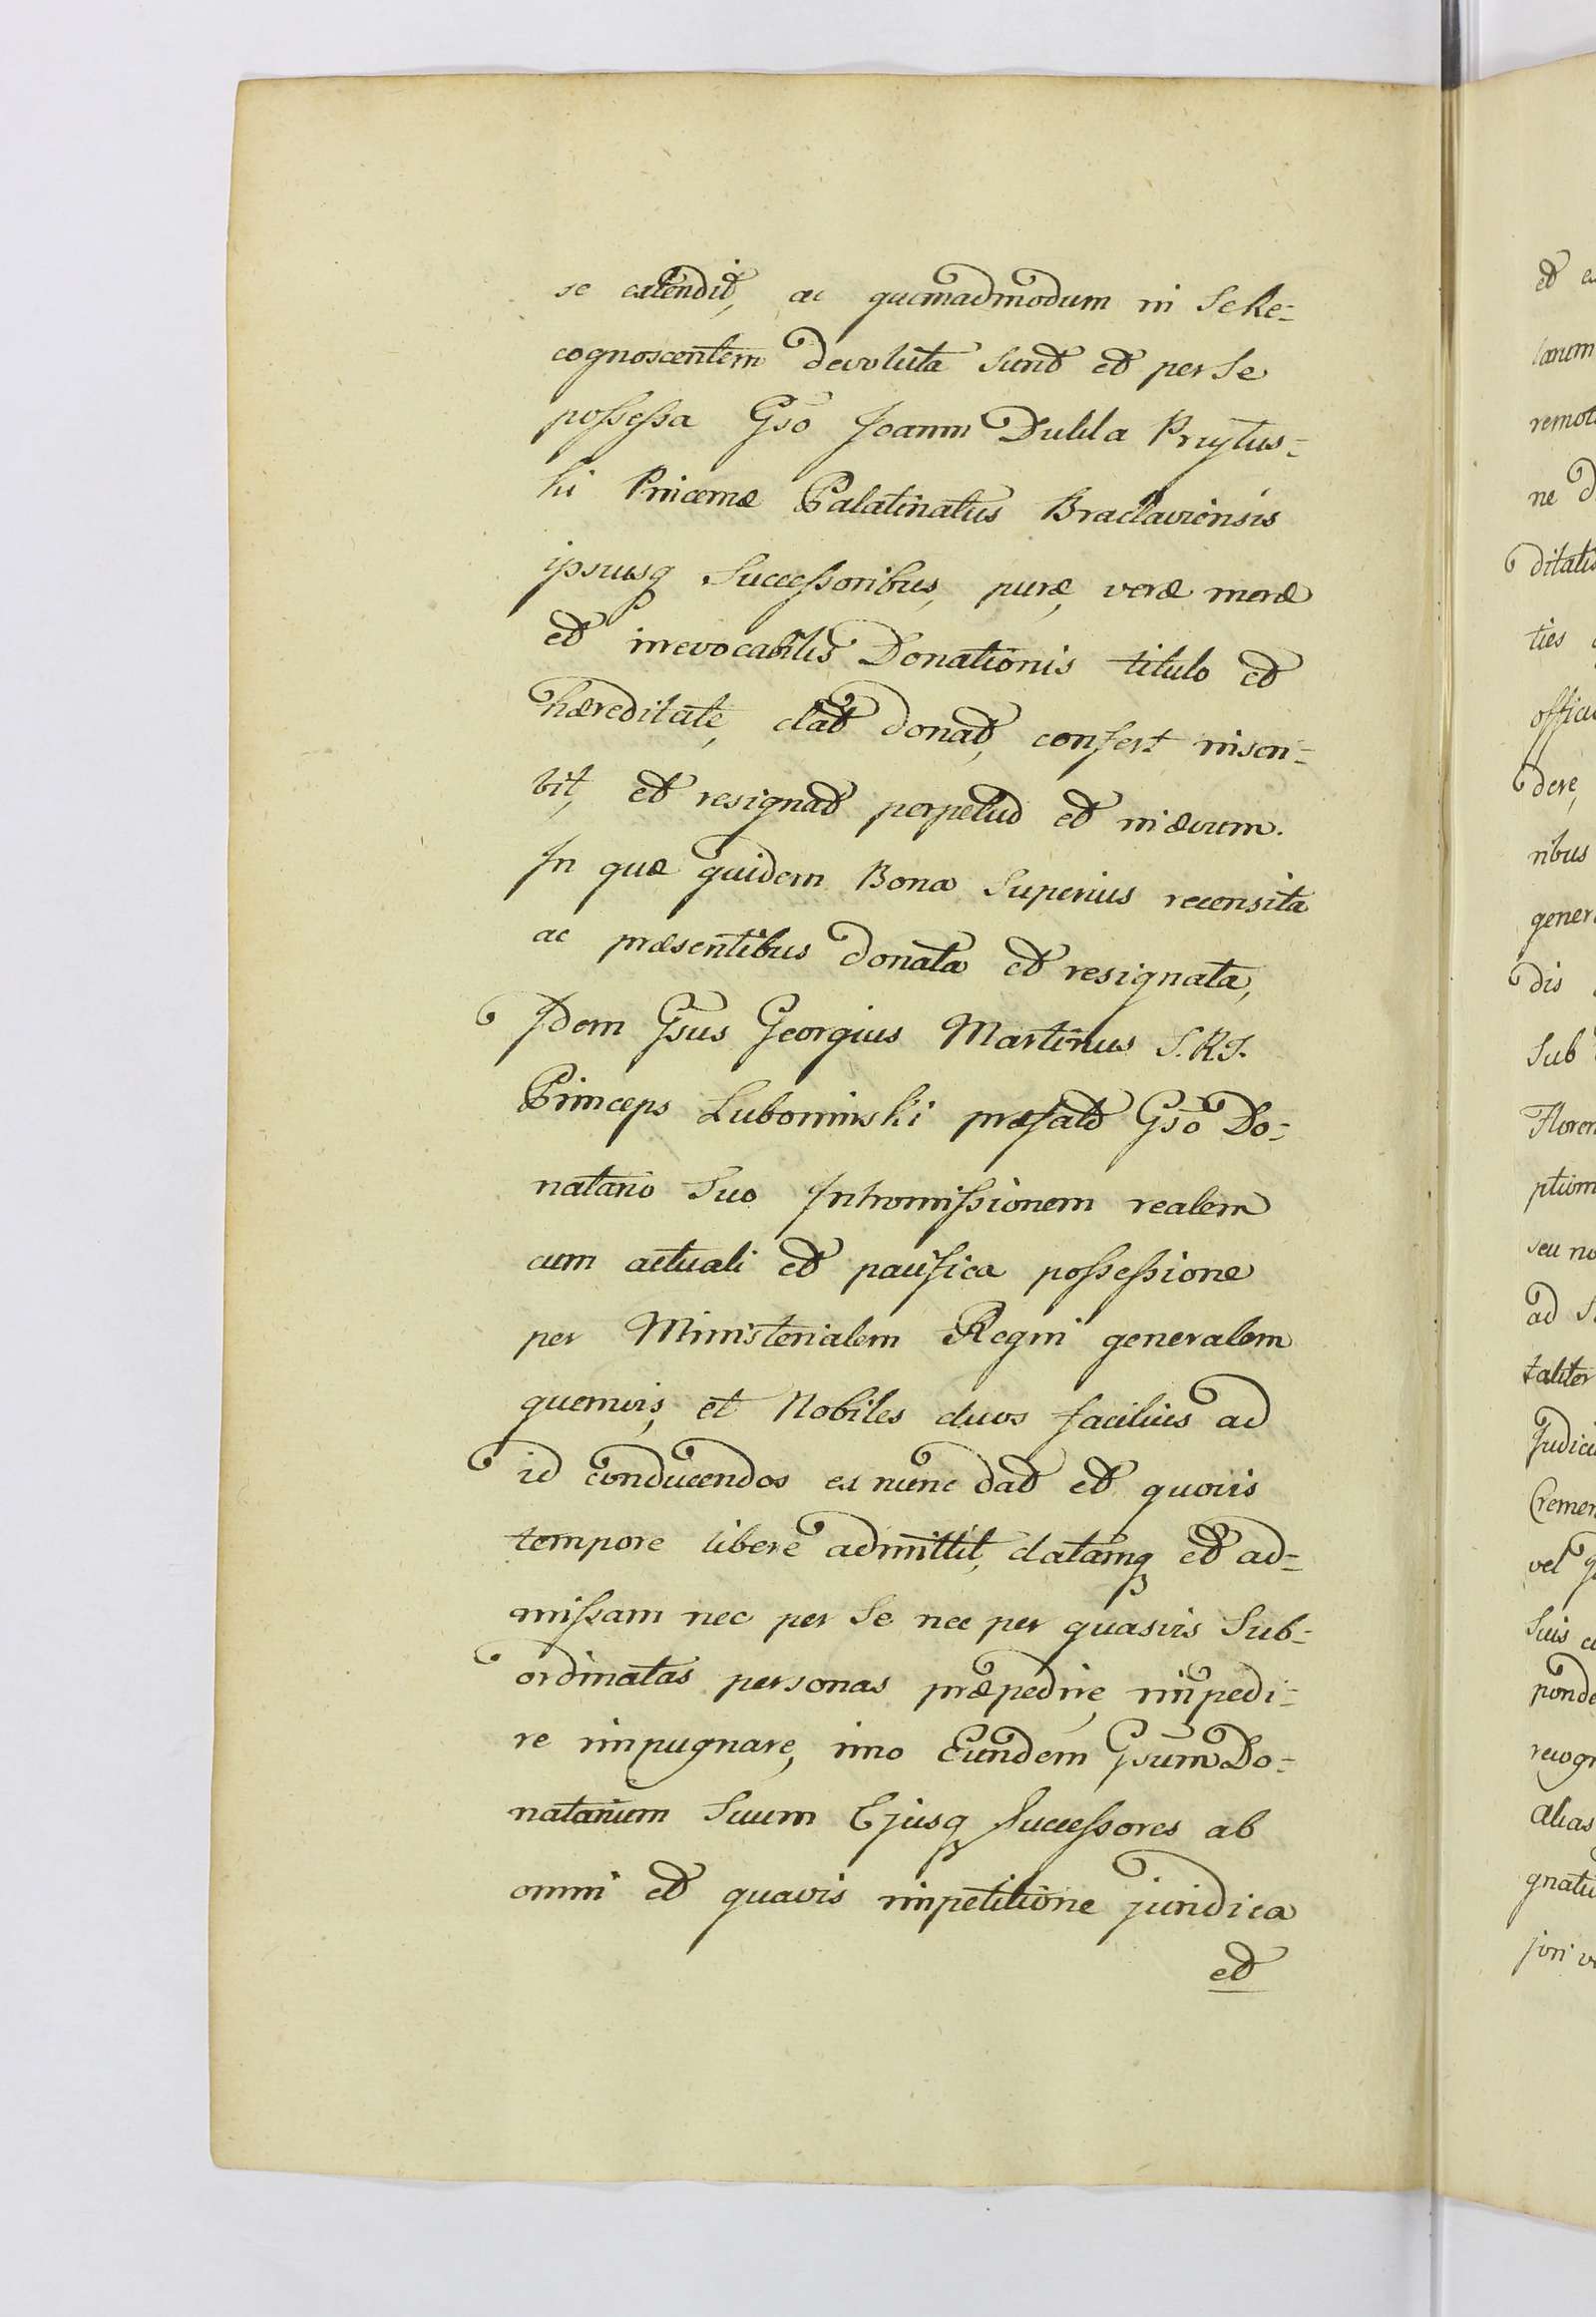 se extendit, ac quemadmodum in se Re=
cognoscentem devoluta sunt et per se
possessa Gso Joanni Dukla Przytus=
ki Pincernæ Palatinatus Braclaviensis
ipsiusq Successoribus, puræ, veræ meræ
et irrevocabilis Donationis titulo et
hæreditate, dat donat, confert inscri=
bit, et resignat perpetuo et in ævum.
In quæ quidem Bona Superius recensita
ac præsentibus donata et resignata,
Idem Gsus Georgius Martinus S.R.I.
Princeps Lubomirski præfato Gso Do=
natario Suo Intromissionem realem
cum actuali et pacifica possessione
per Ministerialem Regni generalem
quemvis, et Nobiles duos facilius ad
id conducendos ex nunc dat et quovis
tempore libere admittit, datamq et ad=
missam nec per se nec per quasvis Sub=
ordinatas personas præpedire, impedi=
re impugnare, imo Eundem Gsum Do=
natarium Suum Ejusq Successores ab
omni et quavis impetitione juridica
et
et
larum
remot
ne
ditatis
ties
offici
dere,
ribus
genera
dis
Sub
Floren
ption
seu no
ad
taliter
Judici
Cremen
vel
Suis
ponde
recogn
alias
gnatu
juri